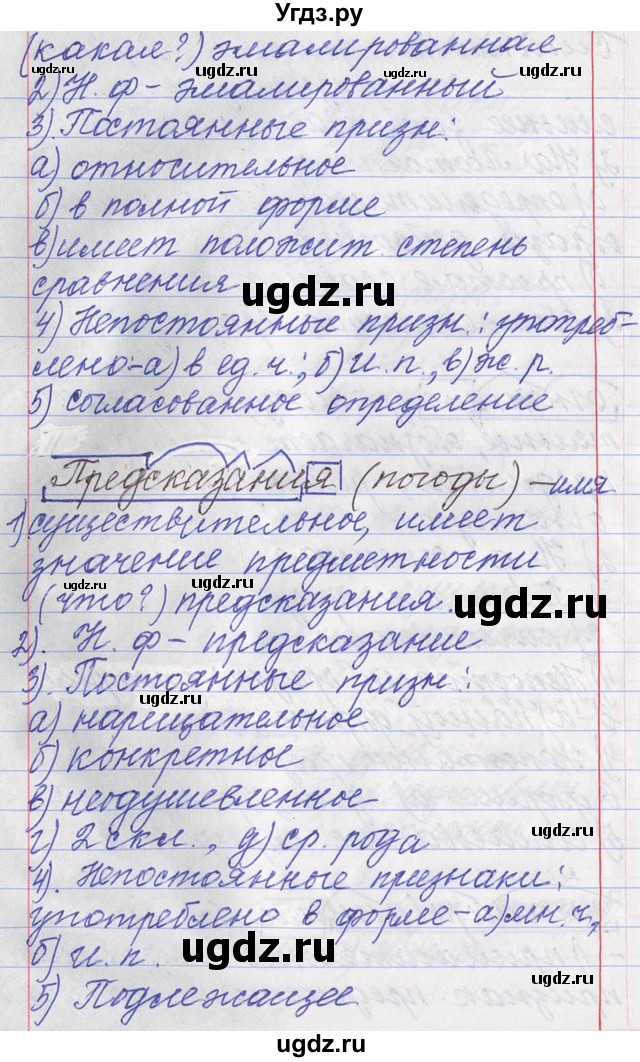 Угдз.ру
(какая?) эмалированная
2) Н. ф – эмалированный
3) Постоянные призн:
а) относительное
б) в полной форме
в) имеет положит. степень
сравнения
4) Непостоянные призн.: употреб-
лено-а) в ед. ч.; б) И. п., в) ж. р.
5) согласованное определение
Предсказания (погоды) – имя
1) существительное, имеет
значение предметности
(что?) предсказания
2). Н. ф – предсказание
3). Постоянные призн:
а) нарицательное
б) конкретное
в) неодушевленное
г) 2 скл., д) ср. рода
4). Непостоянные признаки:
употреблено в форме – а) мн. ч.,
б) И. п.
5) Подлежащее
ugdz.ru